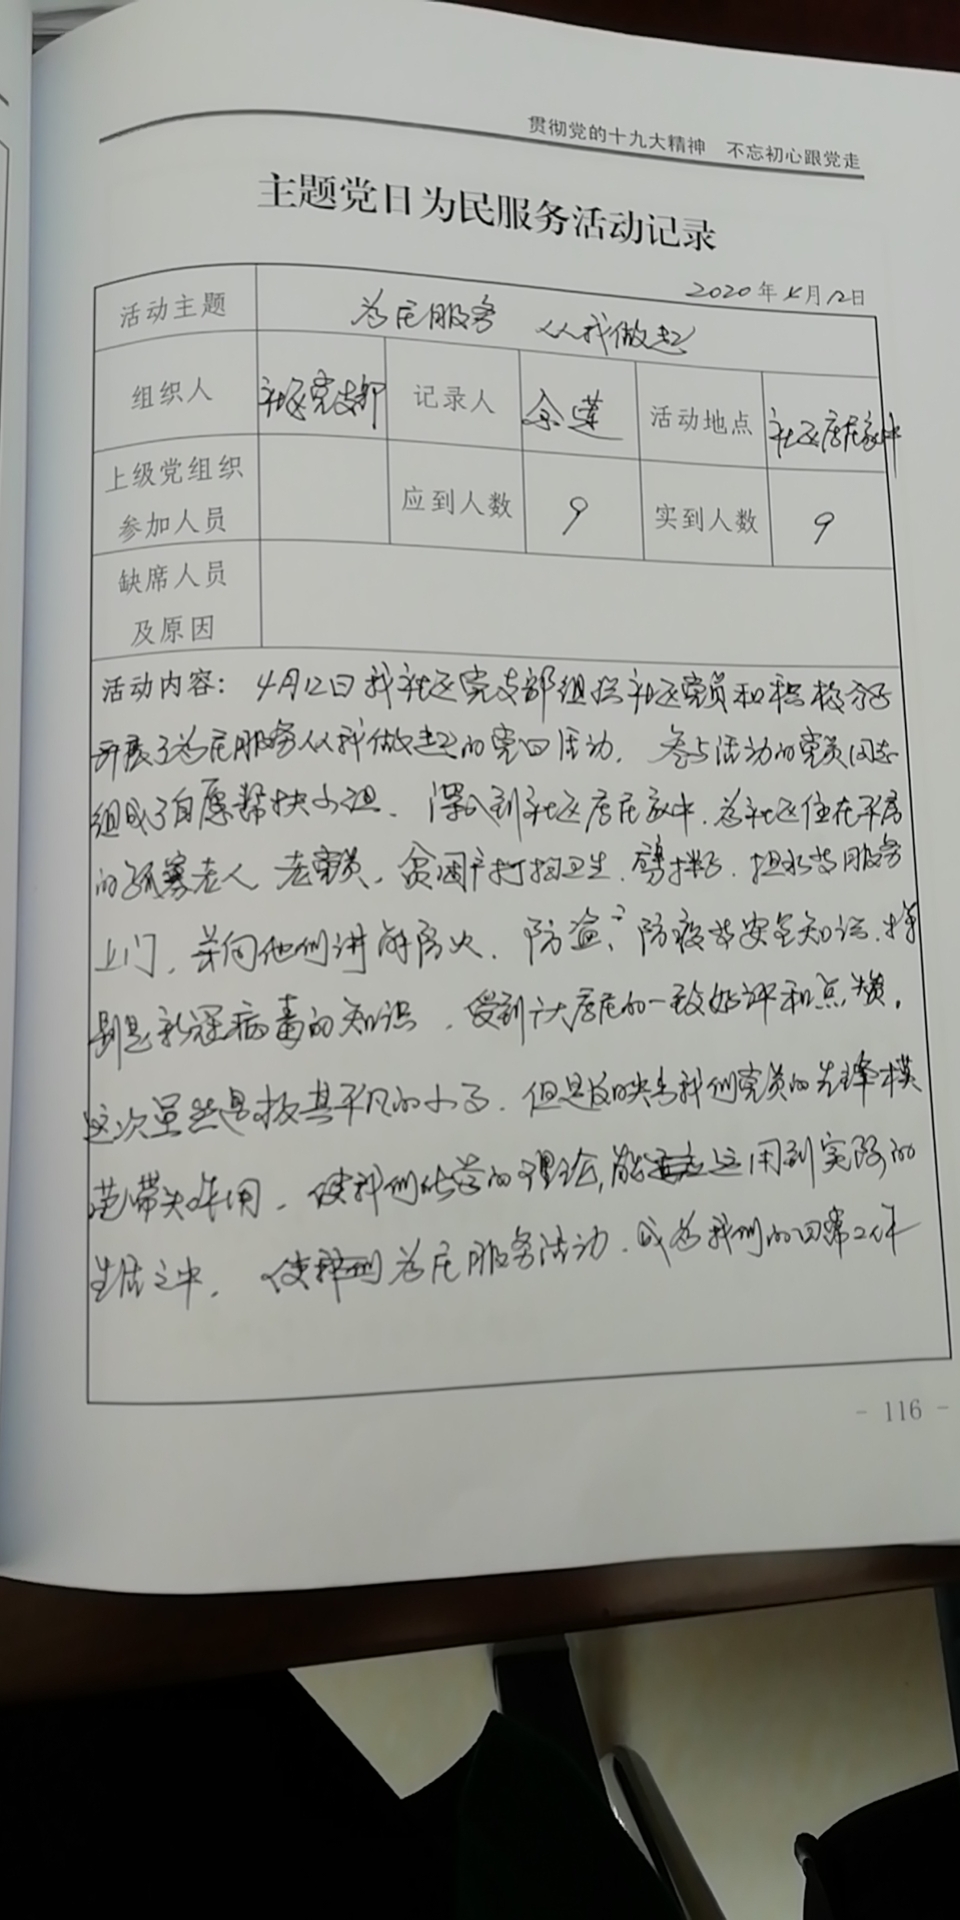 贯彻党的十九大精神 不忘初心跟党走
主题党日为民服务活动记录
2020年4月12日
活动主题 为民服务 从我做起
组织人 社区党支部 记录人 余莲 活动地点 社区居民家中
上级党组织参加人员 应到人数 9 实到人数 9
缺席人员及原因
活动内容：4月12日我社区党支部组织社区党员和积极分子
开展了为民服务从我做起的党日活动，参与活动的党员同志
组成了自愿帮扶小组、深入到社区居民家中，为社区住在平房
的孤寡老人 老党员、贫困户打扫卫生、劈柈子、担水等用服务
上门，并向他们讲解防火、防盗、防疫等安全知识，特
别是新冠病毒的知识，受到广大居民的一致好评和点赞，
这次虽然是极其平凡的小事，但是反映出我们党员的先锋模
范带头作用，使我们所学的理论，能运用到实际的
生活之中，使为民服务活动，成为我们的日常工作
- 116 -